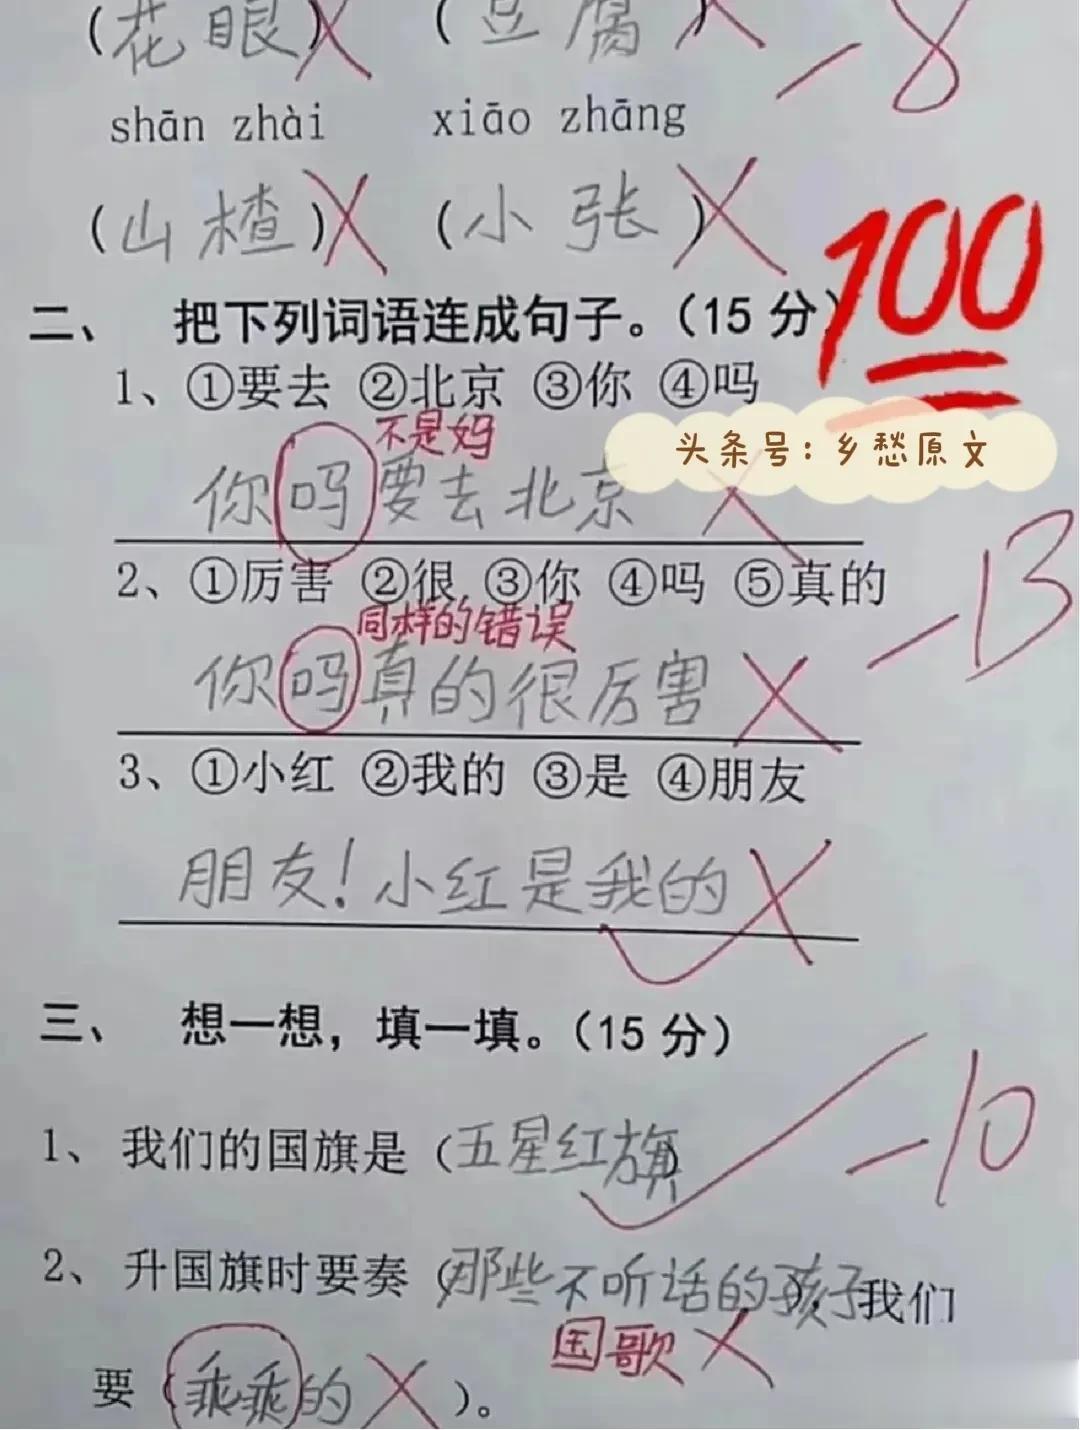 (花眼)× (豆腐)× -8
shān zhài xiāo zhāng
(山楂)× (小张)×
100
二、 把下列词语连成句子。(15分)
1、①要去 ②北京 ③你 ④吗
不是妈
头条号:乡愁原文
你吗要去北京 ×
2、①厉害 ②很 ③你 ④吗 ⑤真的
同样的错误
-13
你吗真的很厉害 ×
3、①小红 ②我的 ③是 ④朋友
朋友!小红是我的 ×
三、 想一想,填一填。(15分)
-10
1、我们的国旗是(五星红旗)
2、升国旗时要奏(那些不听话的孩子),我们
国歌 ×
要(乖乖的 × )。